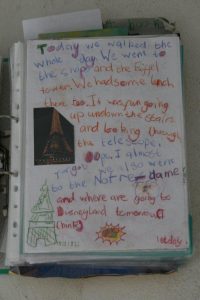 Today we walked the
whole day. We went to
the ships and the Eyfel
tower. We had some lunch
there too. It was fun going
up and down the Stairs
and looking through
the telescope.
Oops, I almost
forgot we also went
to the Notre-dame
and where are going to
Disneyland tomorrow
think